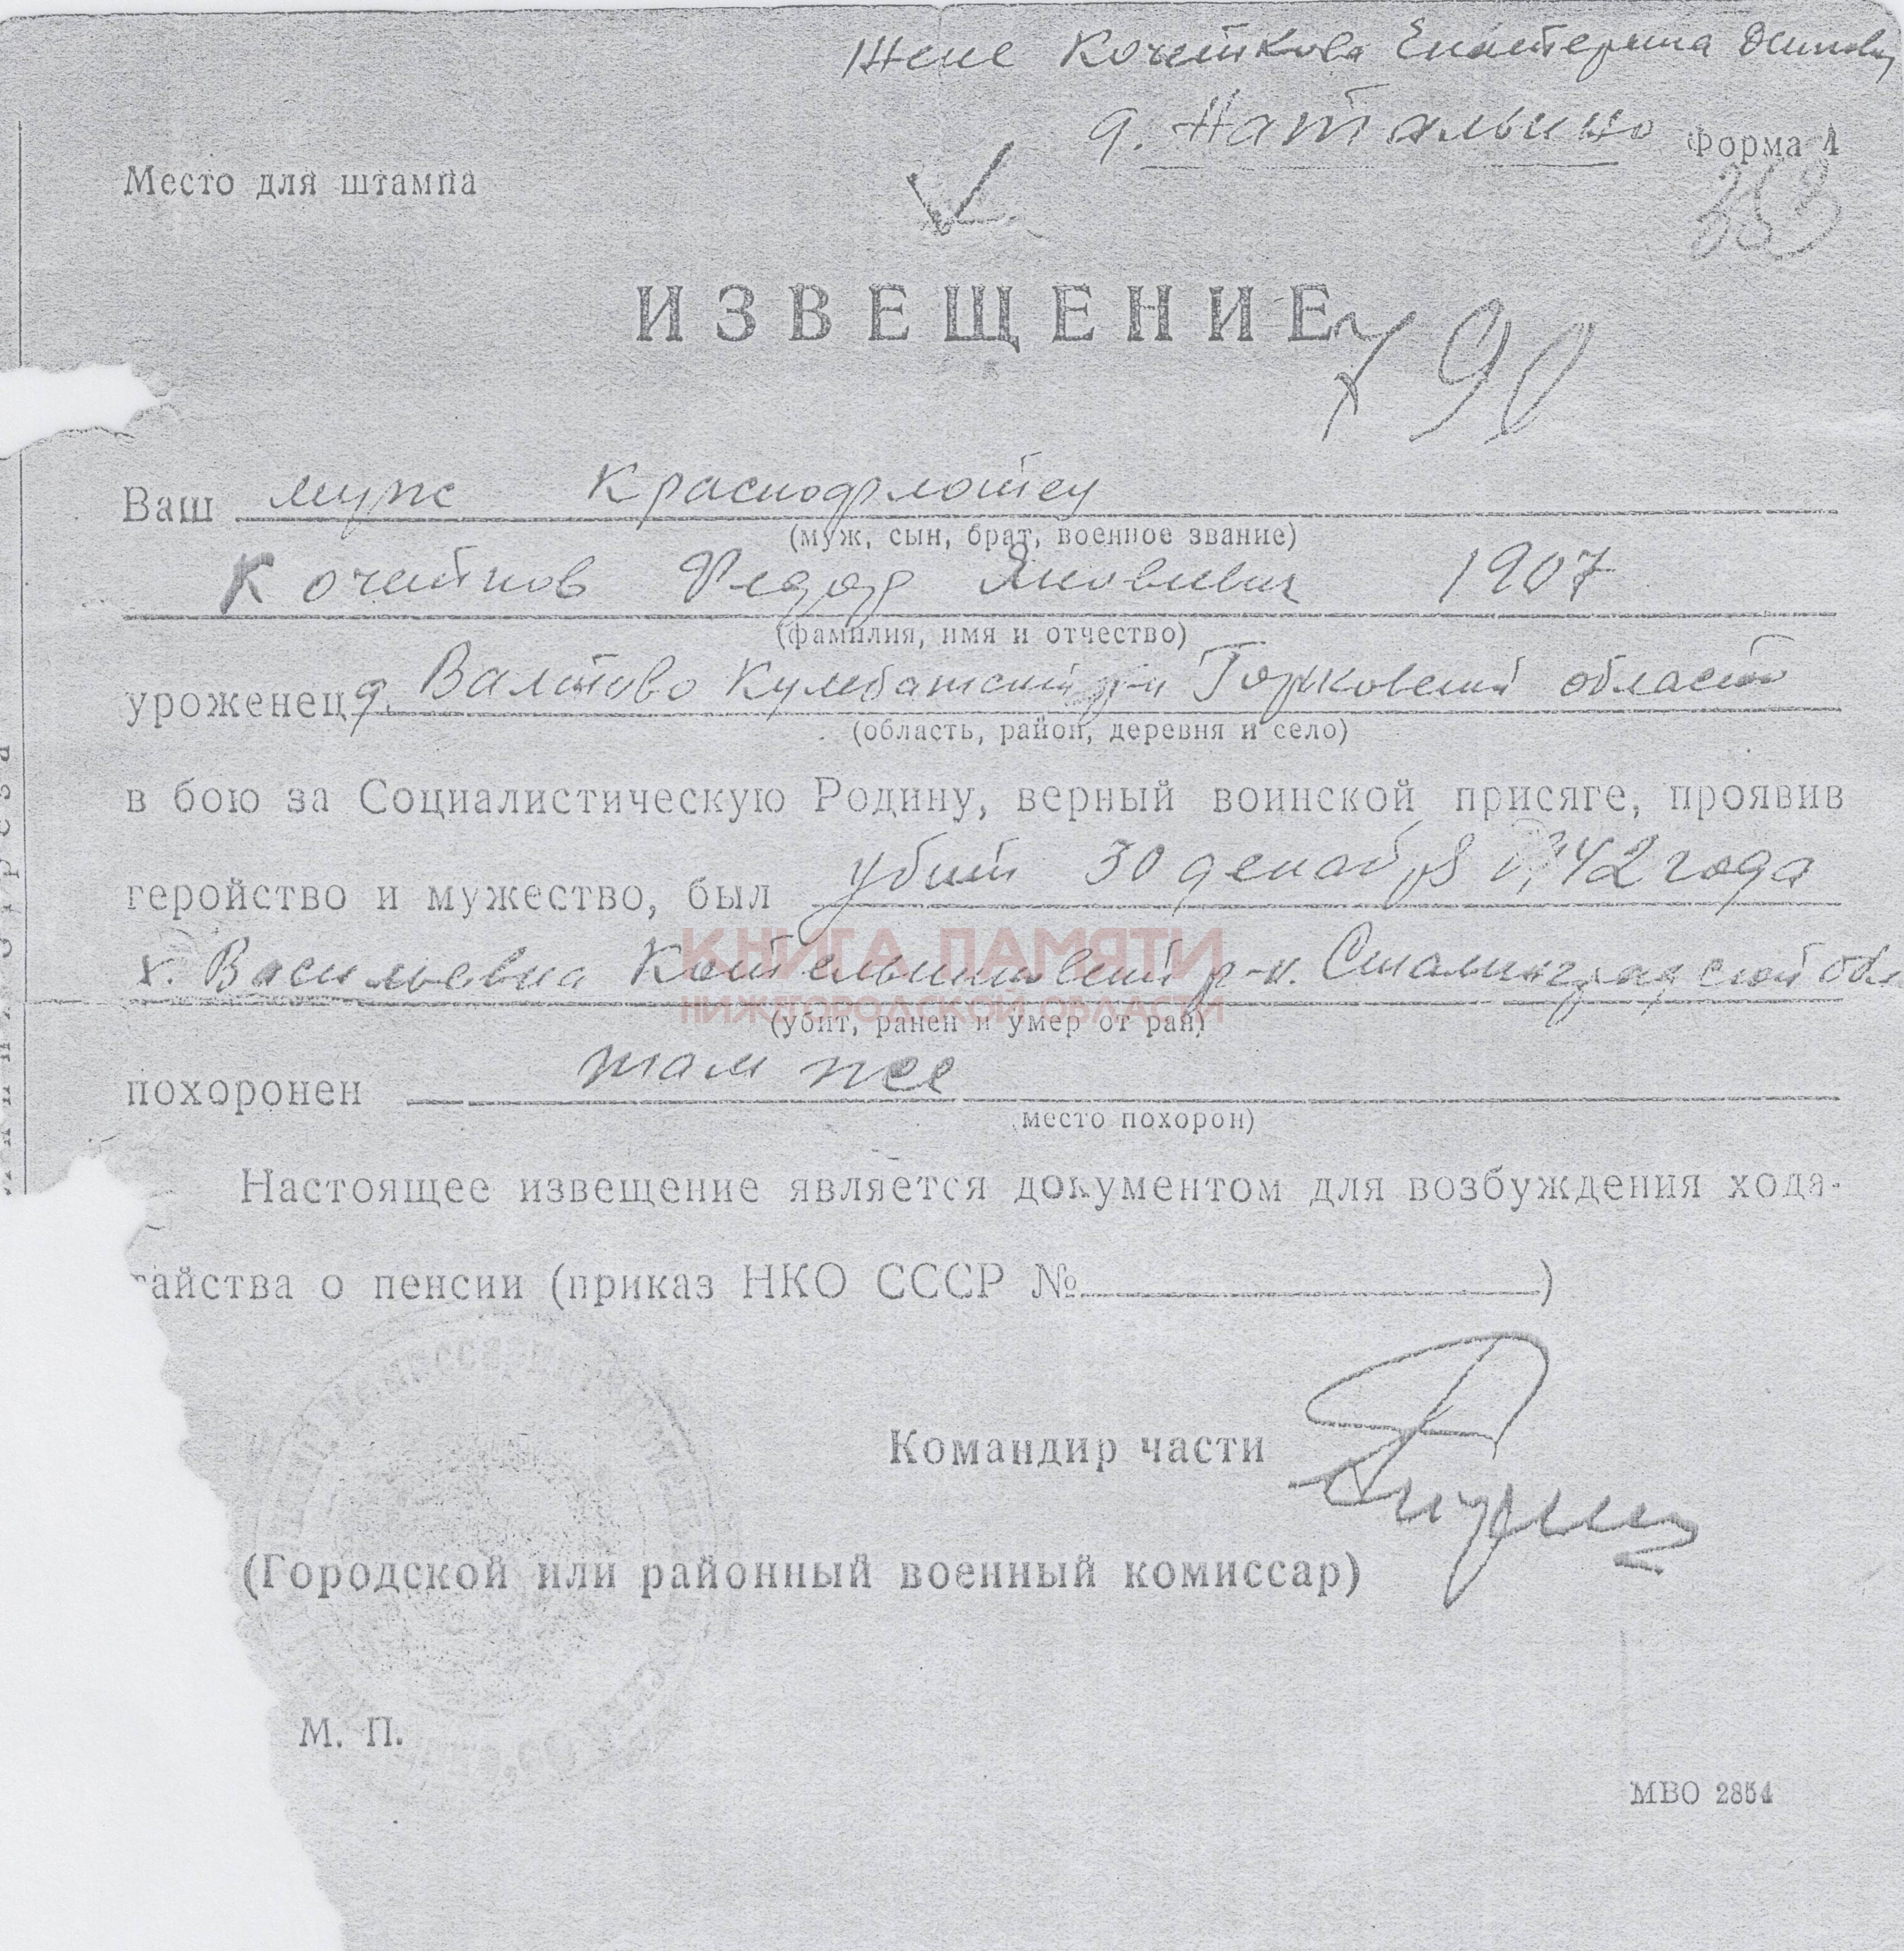 Жене Кочеткова Екатерина Осиповн
д. Натальино
Форма 4
Место для штампа
ИЗВЕЩЕНИЕ
90
Ваш муж Краснофлотец
(муж, сын, брат, военное звание)
Кочетков Федор Яковлевич 1907
(фамилия, имя и отчество)
уроженец д. Валтово Кулебакский р-н Горковский область
(область, район, деревня и село)
в бою за Социалистическую Родину, верный воинской присяге, проявив
геройство и мужество, был убит 30 декабря 42 года
КНИГА ПАМЯТИ
х. Васильевка Котельниковский р-н. Сталинградской обл
НИЖЕГОРОДСКОЙ ОБЛАСТИ
(убит, ранен и умер от ран)
похоронен там же
место похорон)
Настоящее извещение является документом для возбуждения хода-
тайства о пенсии (приказ НКО СССР №)
Командир части
(Городской или районный военный комиссар)
М. П.
МВО 2854